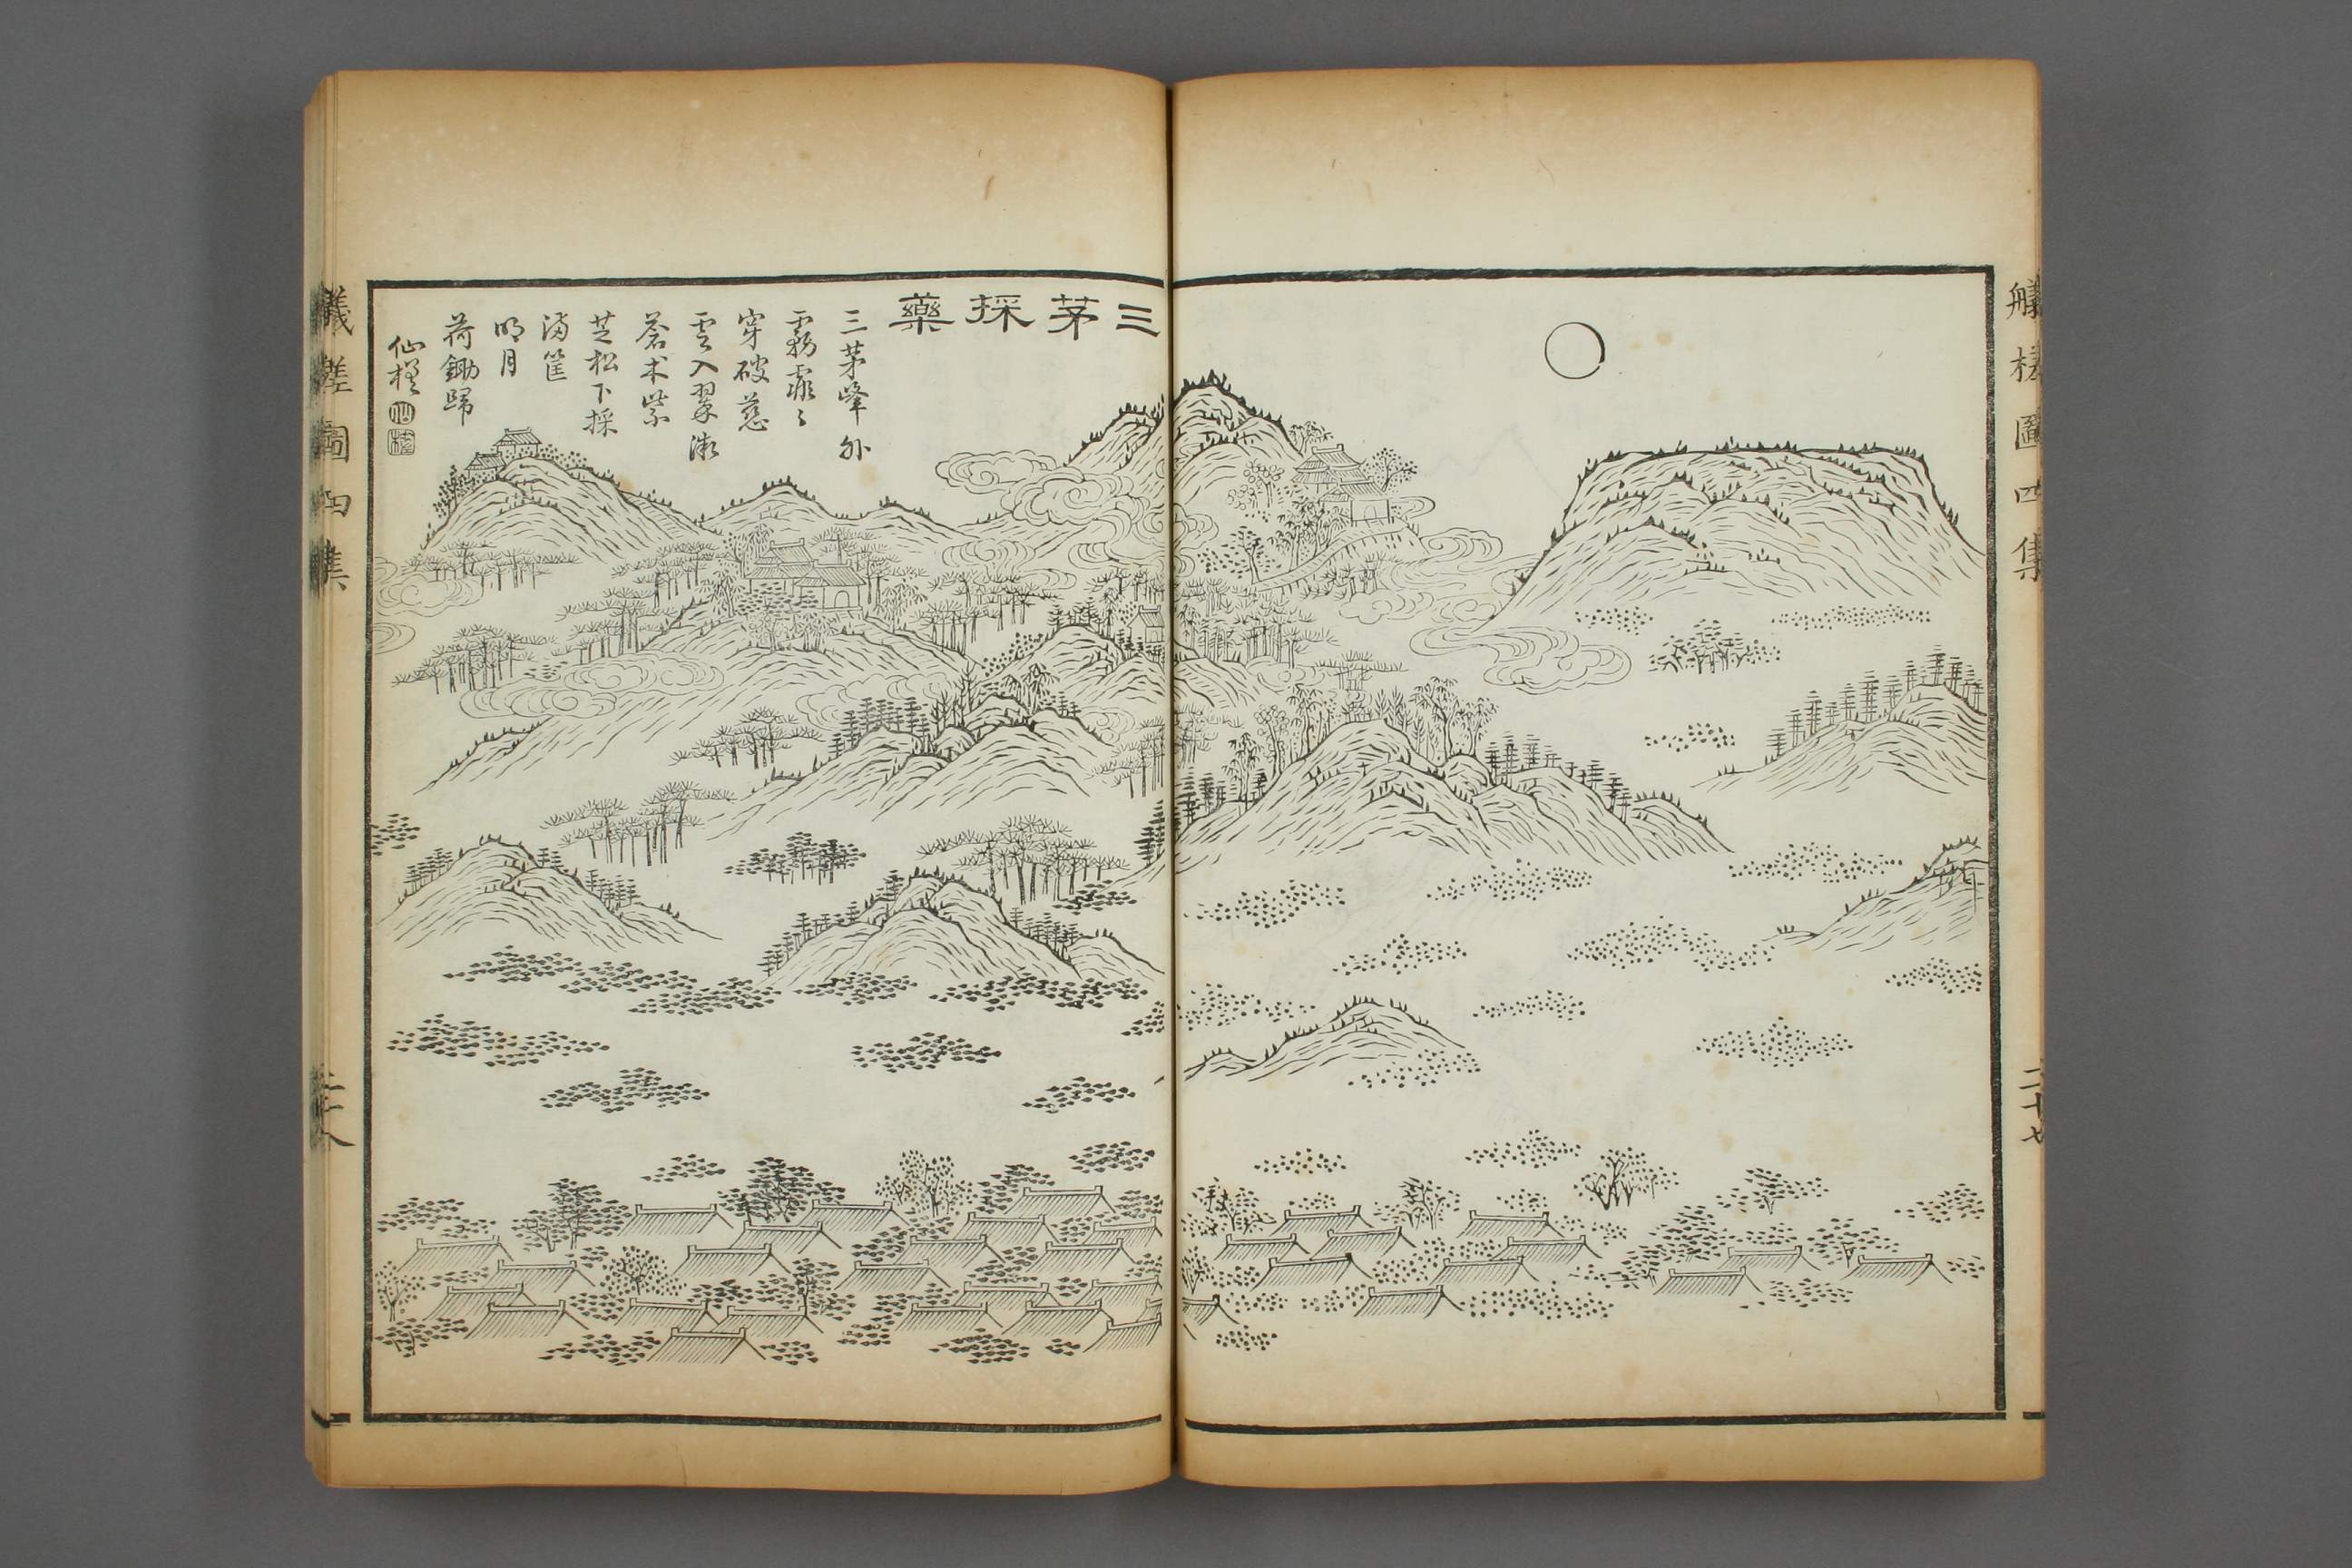 艤槎圖四集
二十七
三茅採藥
三茅峰外
霧霏〻
穿破慈
雲入翠微
蒼朮紫
芝松下採
滿筐
明月
荷鋤歸
仙槎
仙槎
艤槎圖四集
二十八